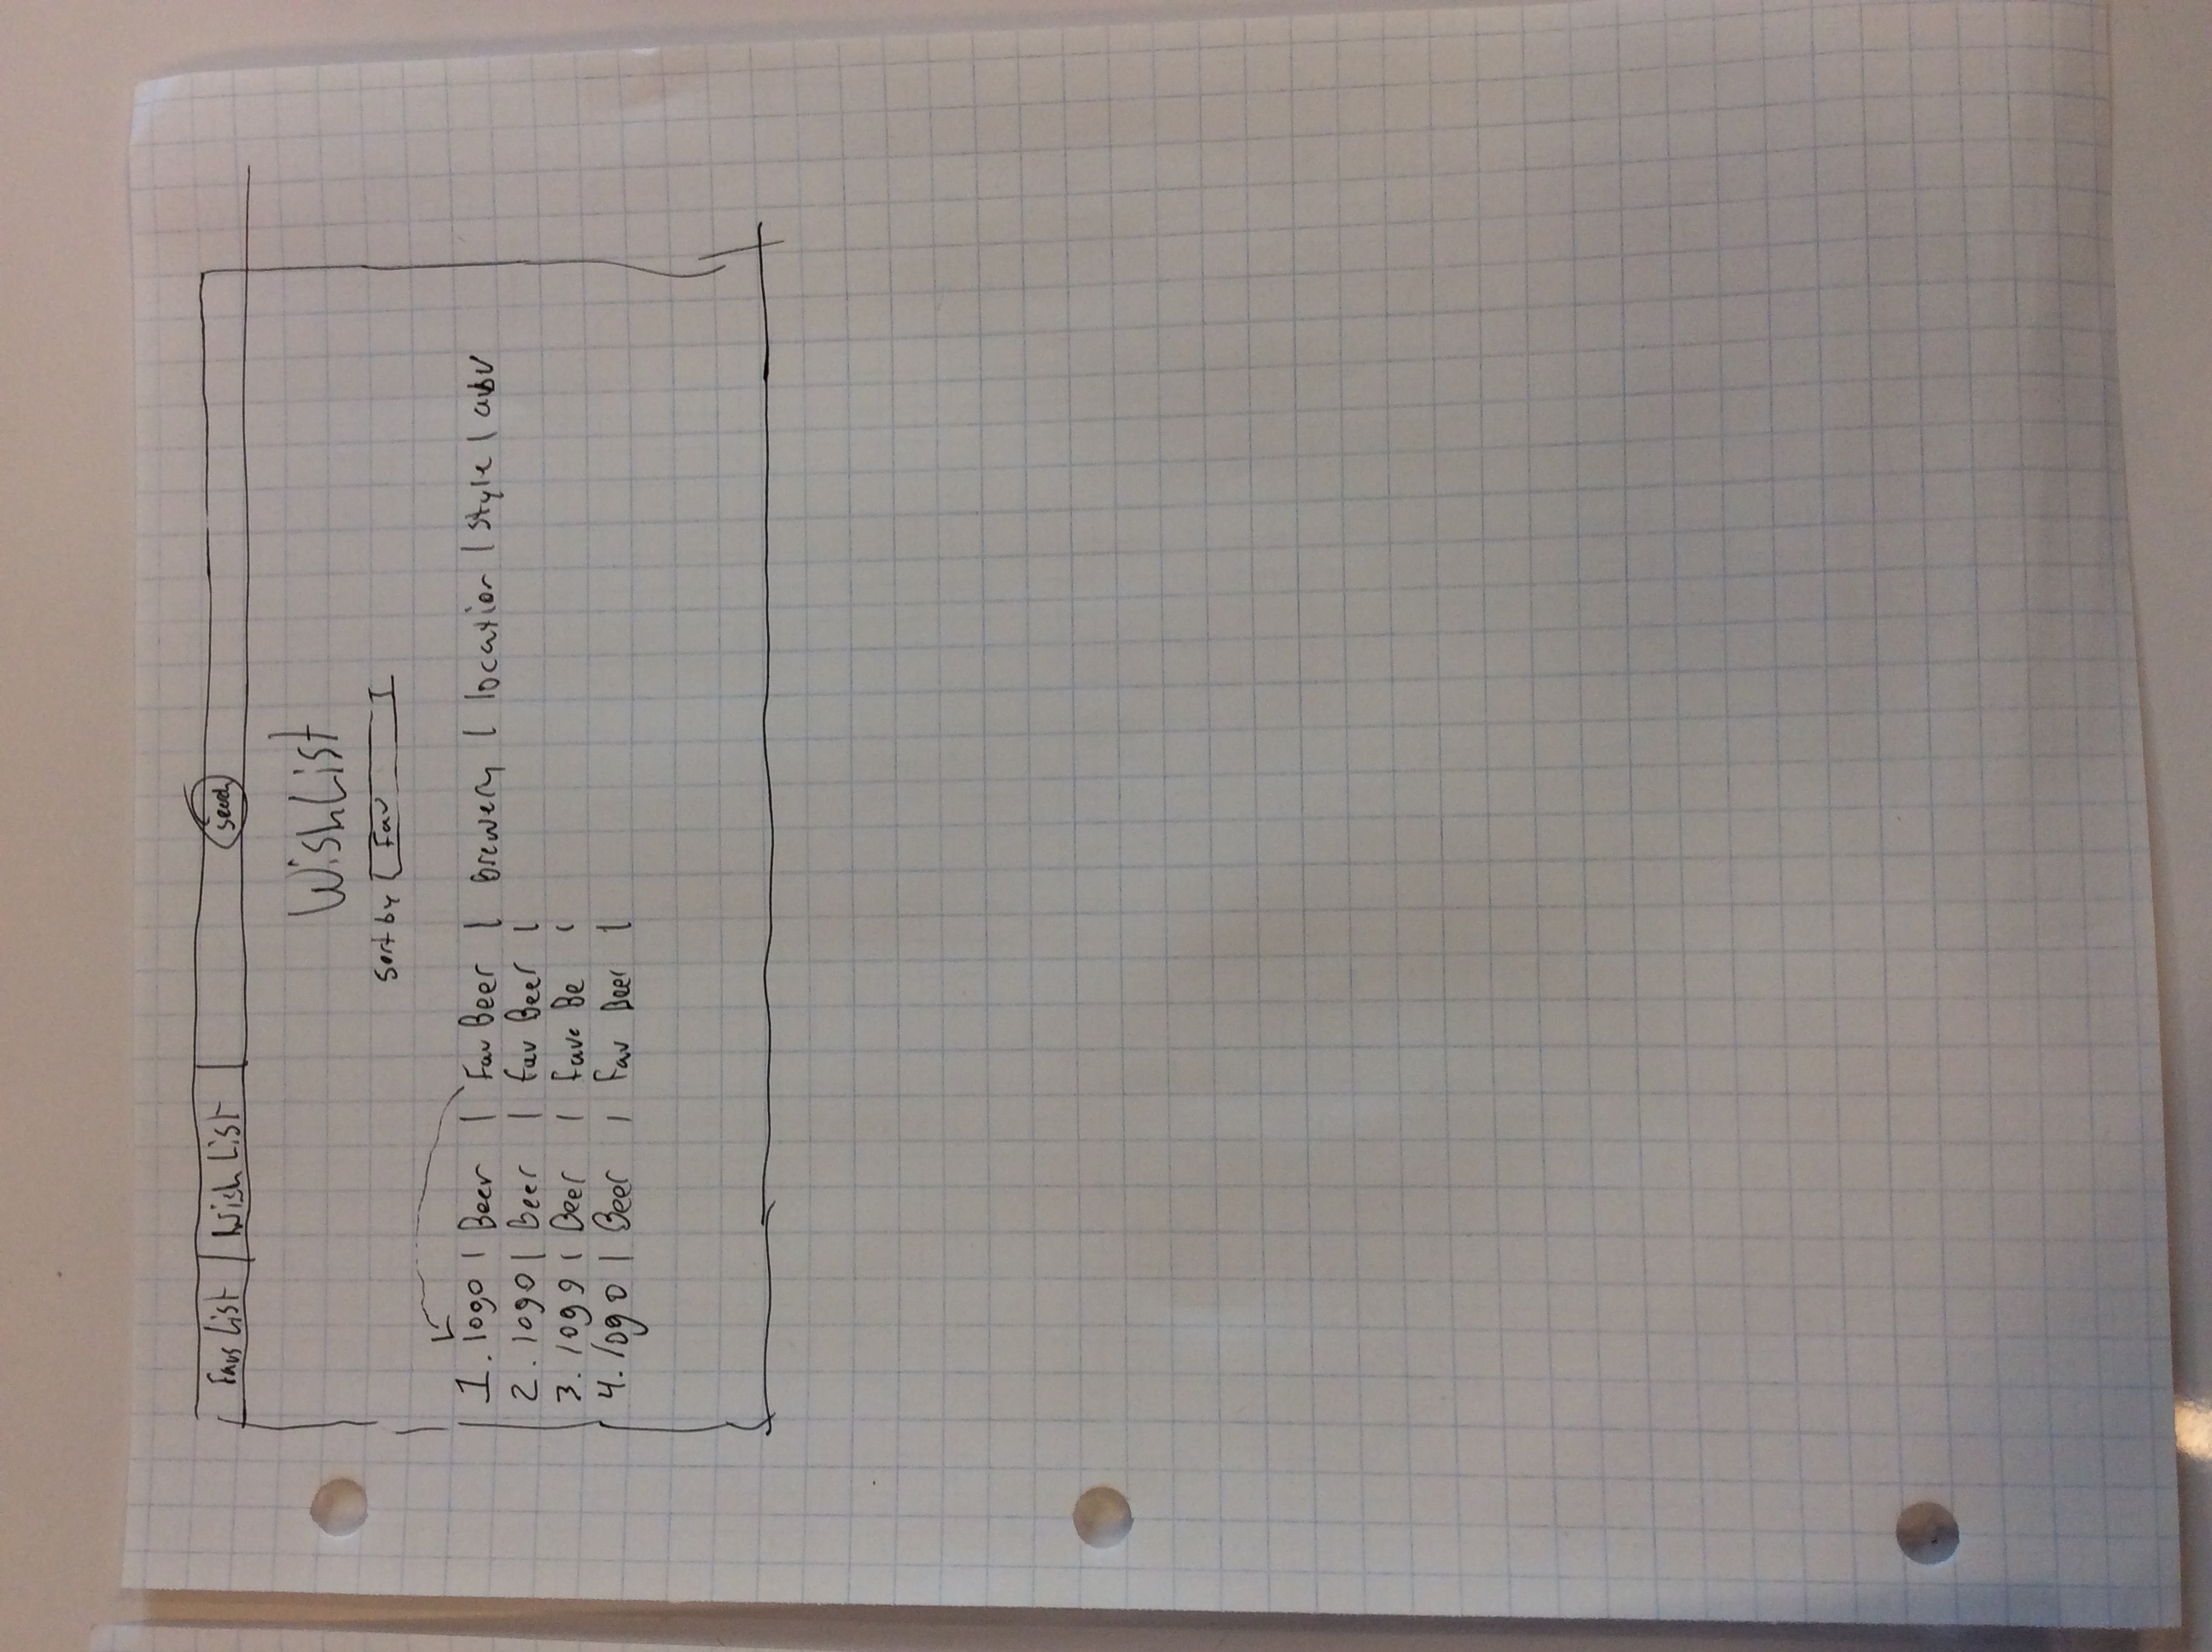 Favs List | Wish List | Search
WishList
Sort by Fav
1. logo | Beer | Fav Beer | brewery | location | style | abv
2. logo | Beer | Fav Beer |
3. logo | Beer | Fave Be |
4. logo | Beer | Fav Beer |